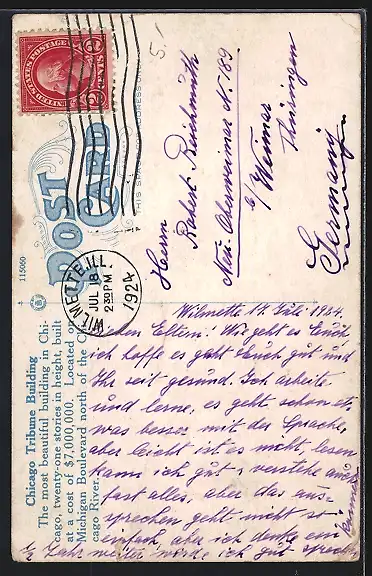 UNITED STATES POSTAGE
2 CENTS 2
WILMETTE, ILL.
JUL 18
2 30 PM
1924
POST
CARD
115060
Chicago Tribune Building
The most beautiful building in Chi-
cago, twenty-one stories in height, built
at a cost of $7,000,000. Located on
Michigan Boulevard north of the Chi-
cago River.
5.-
Herrn
Robert Reichmuth
Neu. Oberweimar N. 189.
b/Weimar
Thüringen
Germany
Wilmette 17. Juli. 1924.
Lieben Eltern! Wie geht es Euch
ich hoffe es geht Euch gut und
Ihr seit gesund. Ich arbeite
und lerne, es geht schon et-
was besser mit der Sprache,
aber leicht ist es nicht, lesen
kann ich gut & verstehe auch
fast alles, aber das aus-
sprechen geht nicht so
einfach, aber ich denke ein
½ Jahr weiter werde ich gut sprechen
können